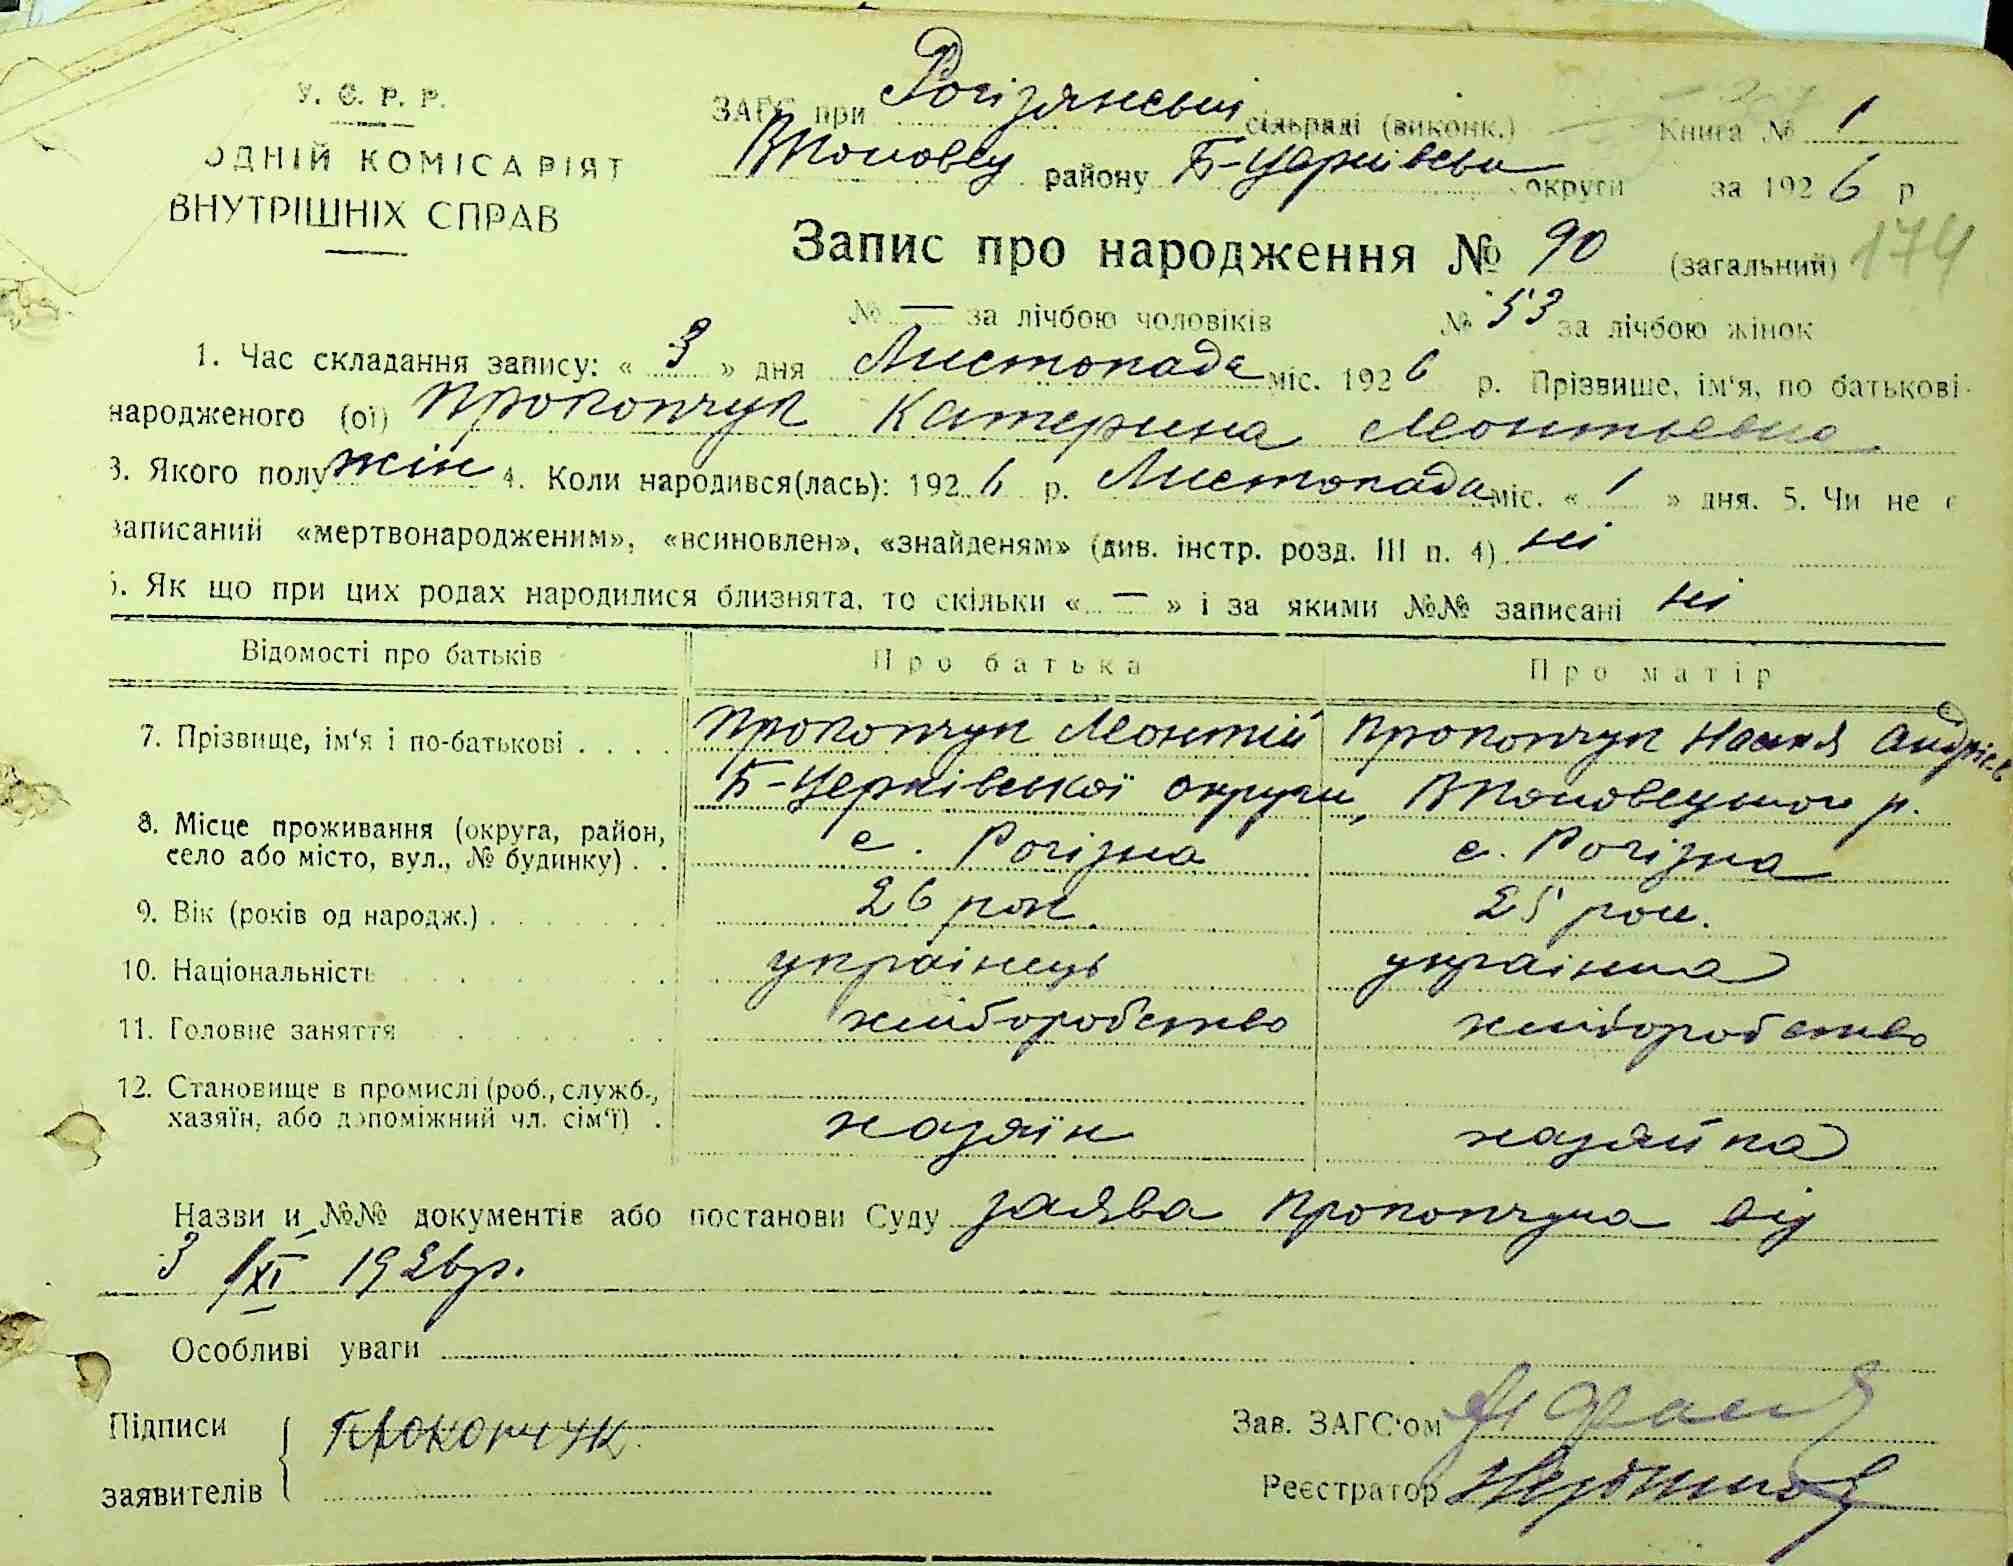 У. С. Р. Р.
ОДНІЙ КОМІСАРІЯТ
ВНУТРІШНІХ СПРАВ
ЗАГС при Рогізянській сільраді (виконк.) Книга № 1
району Б-Церківської округи за 1926 р
Запис про народження № 90 (загальний) 174
№ — за лічбою чоловіків № 53 за лічбою жінок
1. Час складання запису: « 3 » дня Листопада міс. 1926 р. Прізвище, ім'я, по батькові
народженого (ої) Прокопчук Катерина Леонтьевна
3. Якого полу жін 4. Коли народився(лась): 1926 р. Листопада міс. « 1 » дня. 5. Чи не є
записаний «мертвонародженим», «всиновлен», «знайденям» (див. інстр. розд. III п. 4) ні
6. Як що при цих родах народилися близнята, то скільки « — » і за якими №№ записані ні
Відомості про батьків Про батька Про матір
7. Прізвище, ім'я і по-батькові . . . . Прокопчук Леонтій Прокопчук Настя Андріев
Б-Церківської округи,
8. Місце проживання (округа, район, с. Рогізна с. Рогізна
село або місто, вул., № будинку) . .
9. Вік (років од народж.) 26 рок. 25 рок.
10. Національність українець українка
11. Головне заняття хліборобство хліборобство
12. Становище в промислі (роб., служб.,
хазяїн, або допоміжний чл. сім'ї) . хазяїн хазяйка
Назви и №№ документів або постанови Суду заява Прокопчука від
3/XI 1926р.
Особливі уваги
Підписи Прокопчук Зав. ЗАГС'ом
заявителів Реєстратор